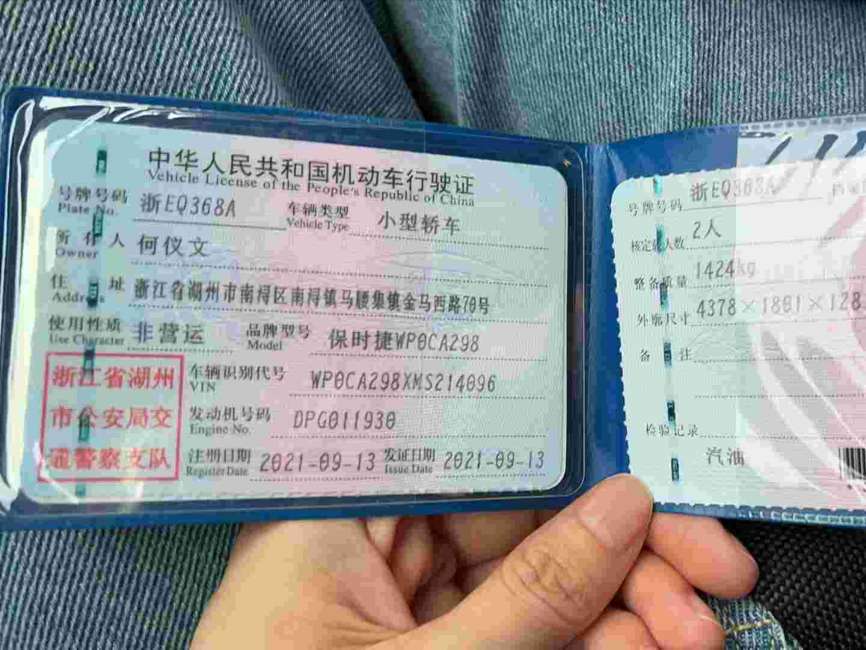 中华人民共和国机动车行驶证
Vehicle License of the People's Republic of China
号牌号码 浙EQ368A 车辆类型 小型轿车
Plate No. Vehicle Type
所有人 何仪文
Owner
住址 浙江省湖州市南浔区南浔镇马腰集镇金马西路70号
Address
使用性质 非营运 品牌型号 保时捷WP0CA298
Use Character Model
浙江省湖州
市公安局交
通警察支队
车辆识别代号 WP0CA298XMS214096
VIN
发动机号码 DPG011930
Engine No.
注册日期 2021-09-13 发证日期 2021-09-13
Register Date Issue Date
号牌号码 浙EQ368A
核定载人数 2人
整备质量 1424kg
外廓尺寸 4378×1801×128
备注
检验记录
汽油